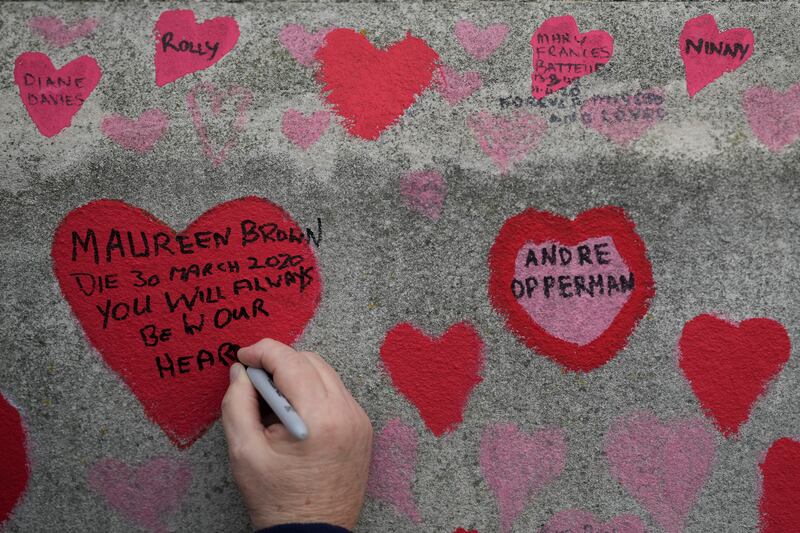 ROLLY
DIANE
DAVIES
MARY
FRANCES
BATTEUE
FOREVER MISSED
AND LOVED
NINNY
MAUREEN BROWN
DIE 30 MARCH 2020
YOU WILL ALWAYS
BE IN OUR
HEAR
ANDRE
OPPERMAN